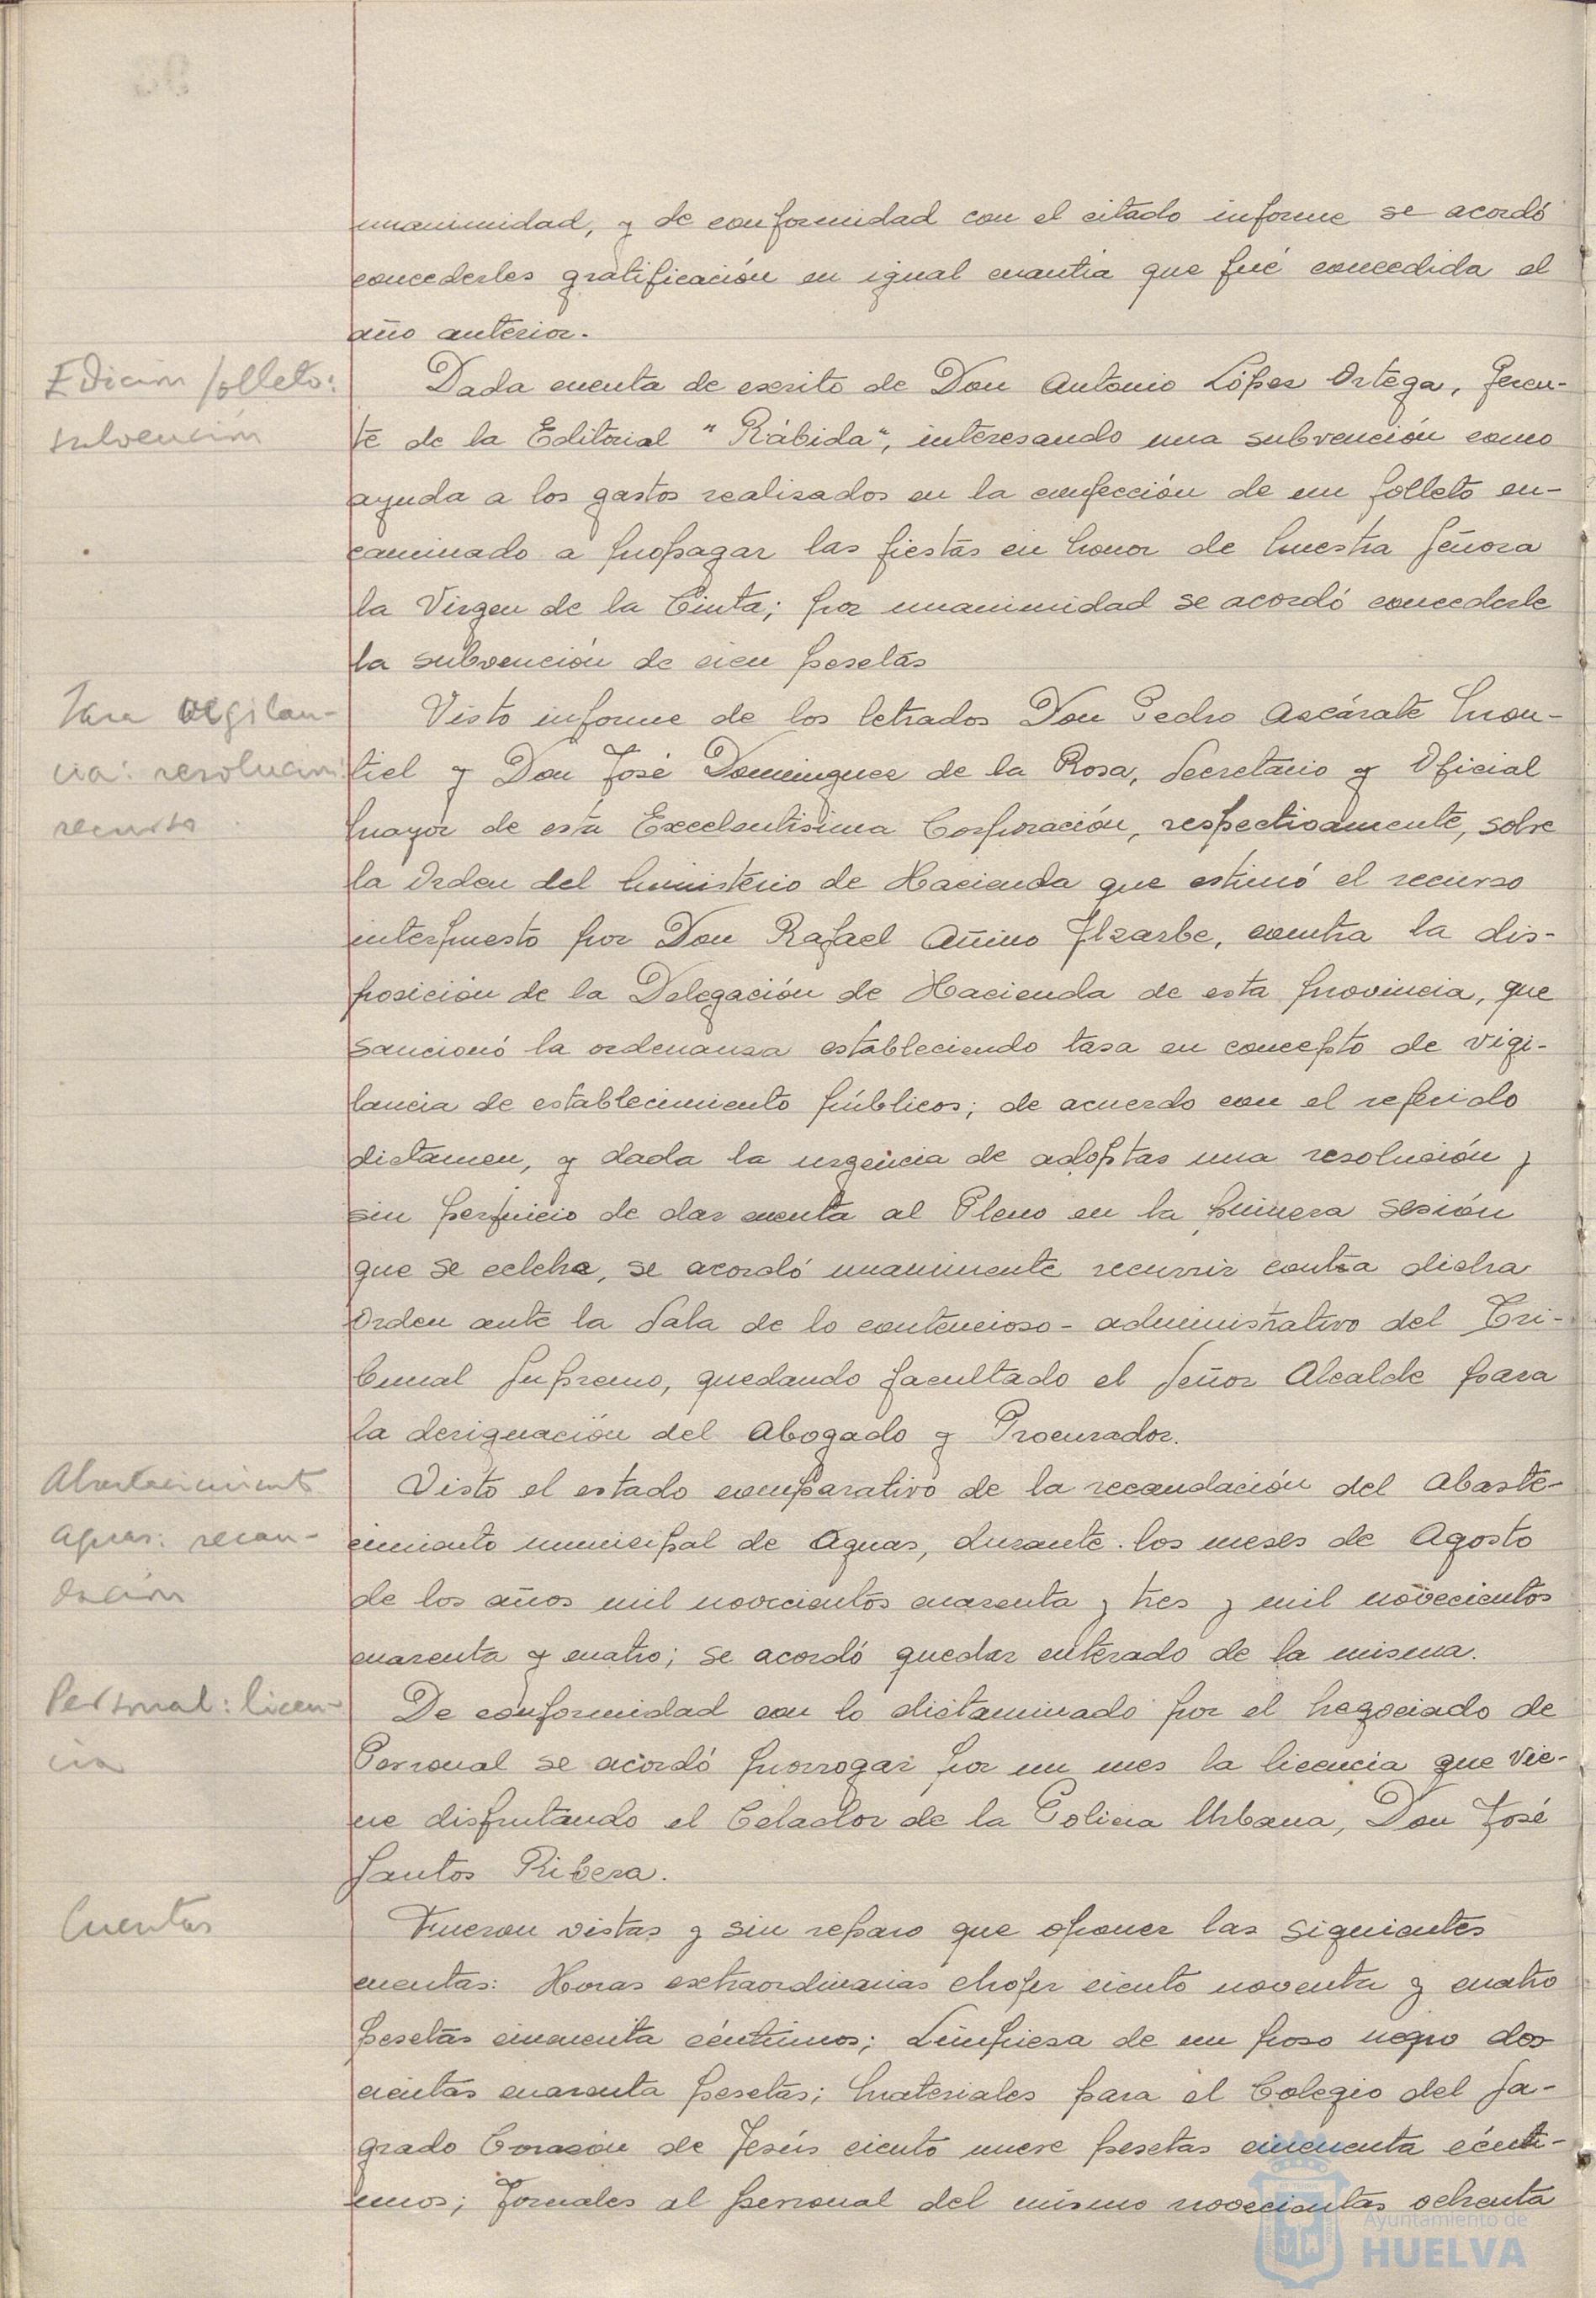 unanimidad, y de conformidad con el citado informe se acordó
concederles gratificación en igual cuantia que fué concedida el
año anterior.
Edición folleto:
subvención
Dada cuenta de escrito de Don Antonio López Ortega, Geren-
te de la Editorial "Rábida", interesando una subvención como
ayuda a los gastos realizados en la confección de un folleto en-
caminado a propagar las fiestas en honor de Nuestra Señora
la Virgen de la Cinta; por unanimidad se acordó concederle
la subvención de cien pesetas
Tasa vigilan-
cia: resolución
recurso
Visto informe de los letrados Don Pedro Azcárate Mon-
tiel y Don José Dominguez de la Rosa, Secretario y Oficial
Mayor de esta Excelentisima Corporación, respectivamente, sobre
la Orden del Ministerio de Hacienda que estimó el recurso
interpuesto por Don Rafael Añino Ilzarbe, contra la dis-
posición de la Delegación de Hacienda de esta provincia, que
sancionó la ordenanza estableciendo tasa en concepto de vigi-
lancia de establecimiento públicos; de acuerdo con el referido
dictamen, y dada la urgencia de adoptar una resolución y
sin perjuicio de dar cuenta al Pleno en la primera sesión
que se celebre, se acordó unanimente recurrir contra dicha
Orden ante la Sala de lo contencioso-administrativo del Tri-
bunal Supremo, quedando facultado el Señor Alcalde para
la designación del Abogado y Procurador.
Abastecimiento
Aguas: recau-
dación
Visto el estado comparativo de la recaudación del Abaste-
cimiento municipal de Aguas, durante los meses de Agosto
de los años mil novecientos cuarenta y tres y mil novecientos
cuarenta y cuatro; se acordó quedar enterado de la misma.
Personal: licen-
cia
De conformidad con lo dictaminado por el Negociado de
Personal se acordó prorrogar por un mes la licencia que vie-
ne disfrutando el Celador de la Policia Urbana, Don José
Santos Ribera.
Cuentas
Fueron vistas y sin reparo que oponer las siguientes
cuentas: Horas extraordinarias chofer ciento noventa y cuatro
pesetas cincuenta céntimos; Limpieza de un pozo negro dos
cientas cuarenta pesetas; Materiales para el Colegio del Sa-
grado Corazón de Jesús ciento nueve pesetas cincuenta cénti-
mos; Jornales al personal del mismo novecientas ochenta
Ayuntamiento de
HUELVA